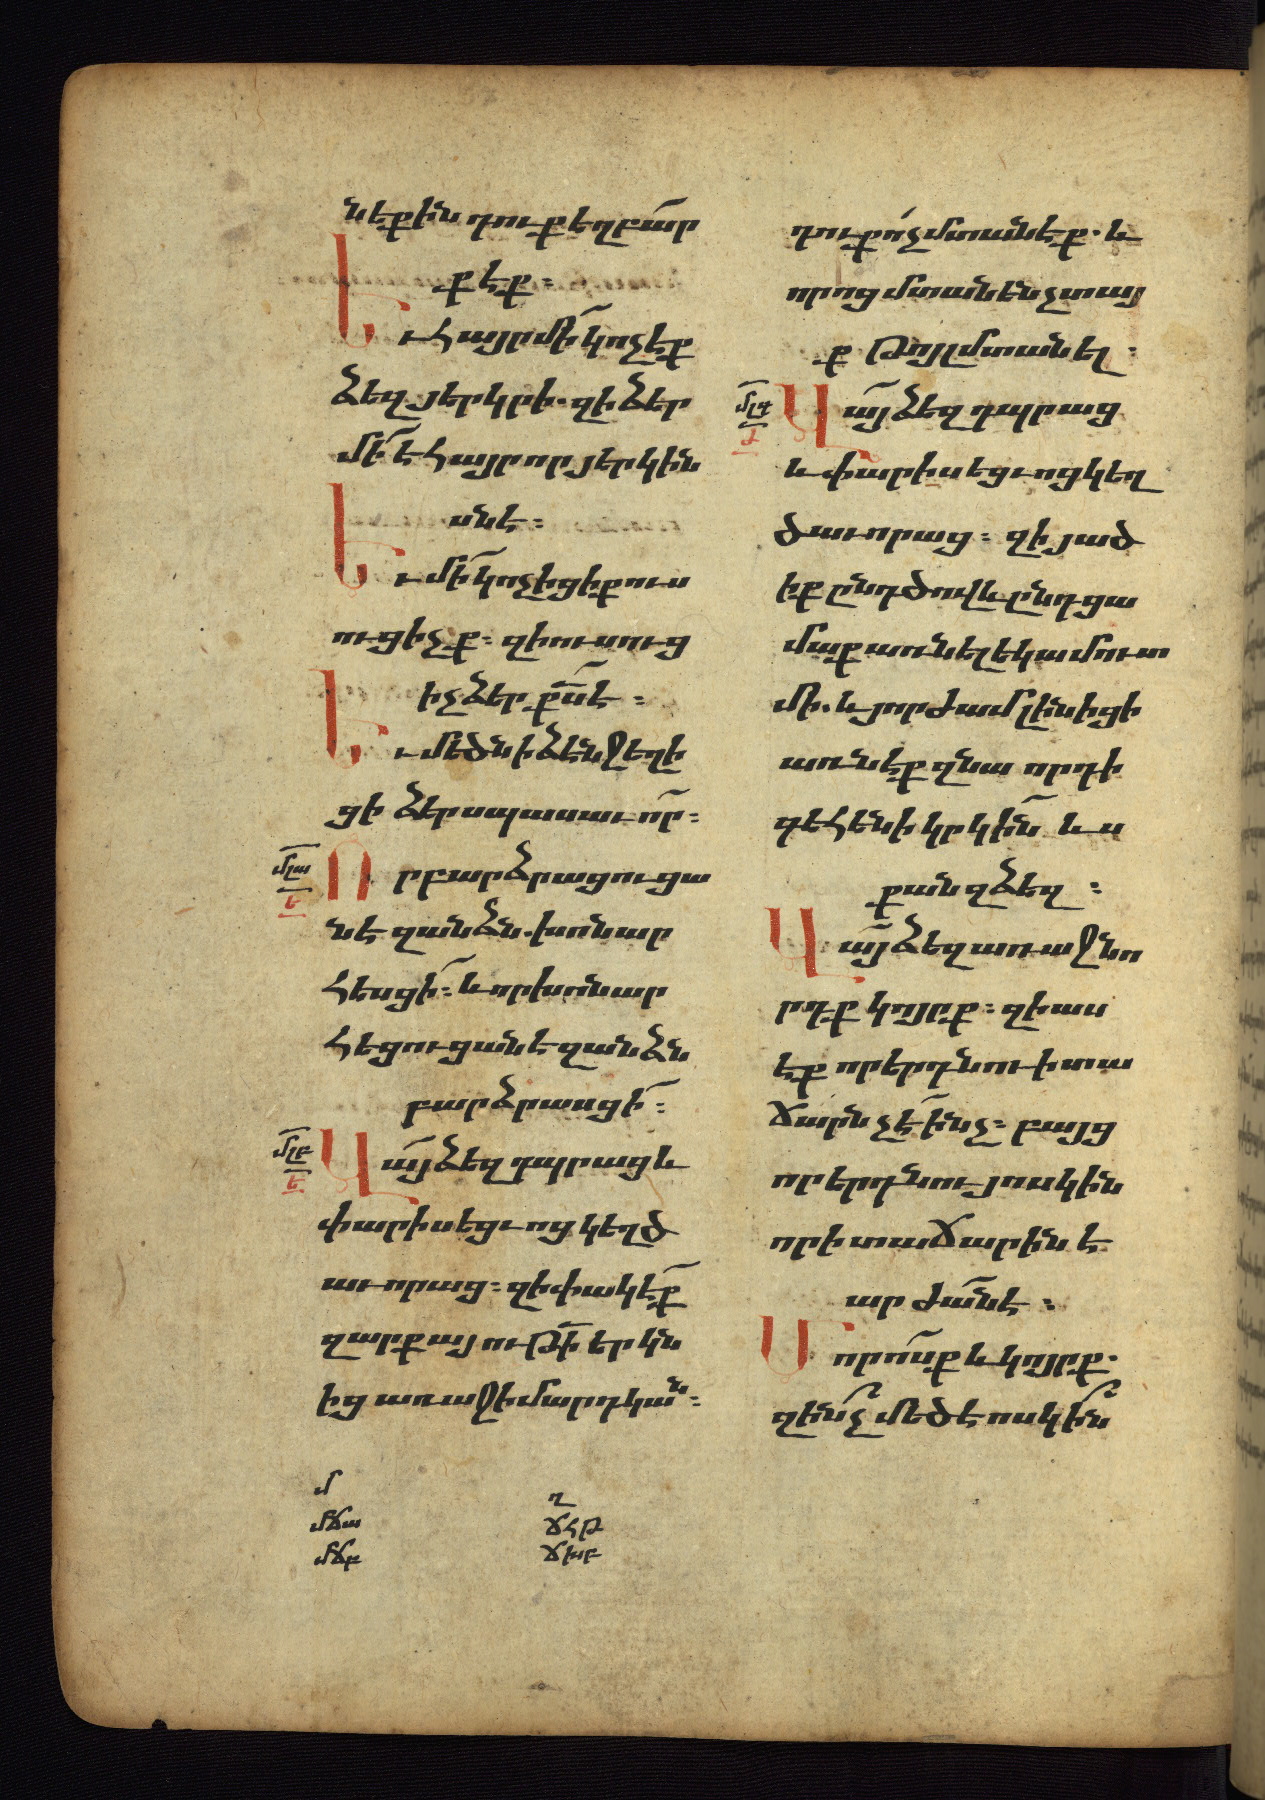 նէքին դուք եղբա՟ր
ք էք ։
Եւ հայր մի՟ կոչէք
ձեզ յերկրի . զի ձեր
մի՟ է հայր որ յերկին
սն է ։
Եւ մի՟ կոչիցիք ուս
ուցիչք ։ զի ուսուց
իչ ձեր ք՟ս է ։
Եւ մեծն ի ձէնջ եղի
ցի ձեր սպասաւո՟ր ։
մլա
ե
Որ բարձրացուցա
նէ զանձն . խոնար
հեսցի՟ ։ և որ խոնար
հեցուցանէ զանձն
բարձրասցի՟ ։
մլբ
ե
Վա՟յ ձեզ դպրաց և
փարիսեցւոց կեղծ
աւորաց ։ զի փակէք՟
զարքայութի՟ երկն
ից առաջի մարդկան ։
դուք ո՛չ մտանէք . և
որոց մտանեն չտայ
ք թոյլ մտանել ։
մլգ
ժ
Վա՟յ ձեզ դպրաց
և փարիսեցւոց կեղ
ծաւորաց ։ զի յած
իք ընդ ծով և ընդ ցա
մաք առնել եկամուտ
մի . և յորժամ լինիցի
առնէք զնա որդի
գեհենի կրկին՟ ևս
քան զձեզ ։
Վա՟յ ձեզ առաջնո
րդք կոյրք ։ զի աս
էք որ երդնու ի տա
ճարն չէ ինչ՟ ։ բայց
որ երդնու յոսկին
որ ի տաճարին է
արժա՟ն է ։
Մորո՟սք և կոյրք .
զի՟նչ մեծ է ոսկի՟ն
մ
մճա
մճբ
ղ
ճհթ
ճխբ